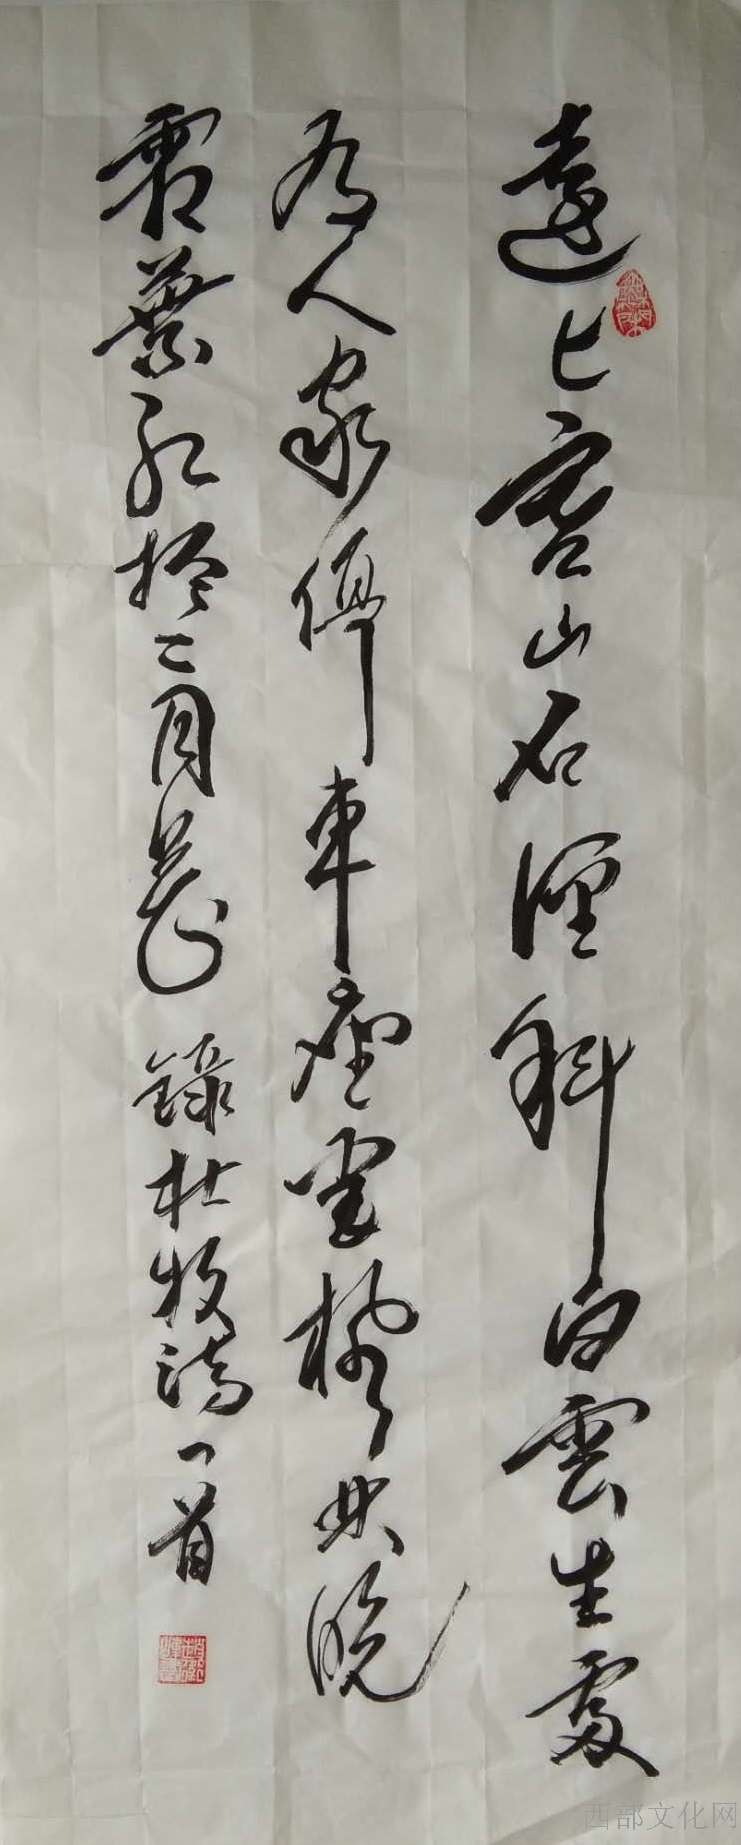 遠上寒山石徑斜白雲生處
有人家停車坐愛楓林晚
霜葉紅於二月花 錄杜牧詩一首
西部文化网